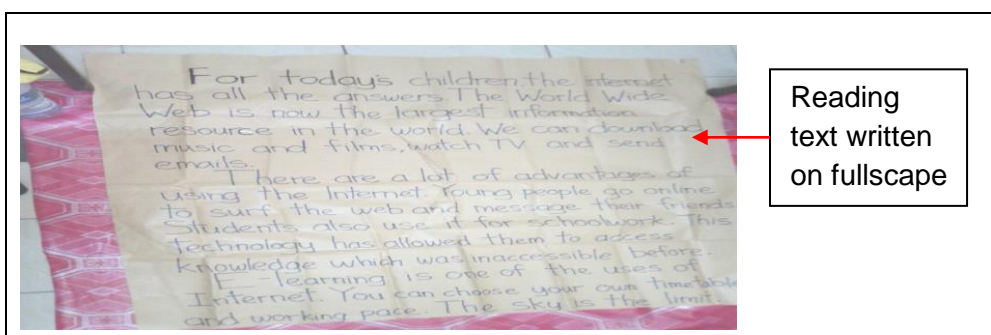 For today's children, the internet
has all the answers. The World Wide
Web is now the largest information
resource in the world. We can download
music and films, watch TV and send
emails.
There are a lot of advantages of
using the Internet. Young people go online
to surf the web and message their friends
Students also use it for schoolwork. This
technology has allowed them to access
knowledge which was inaccessible before.
E-learning is one of the uses of
Internet. You can choose your own timetable
and working pace. The sky is the limit.
Reading
text written
on fullscape